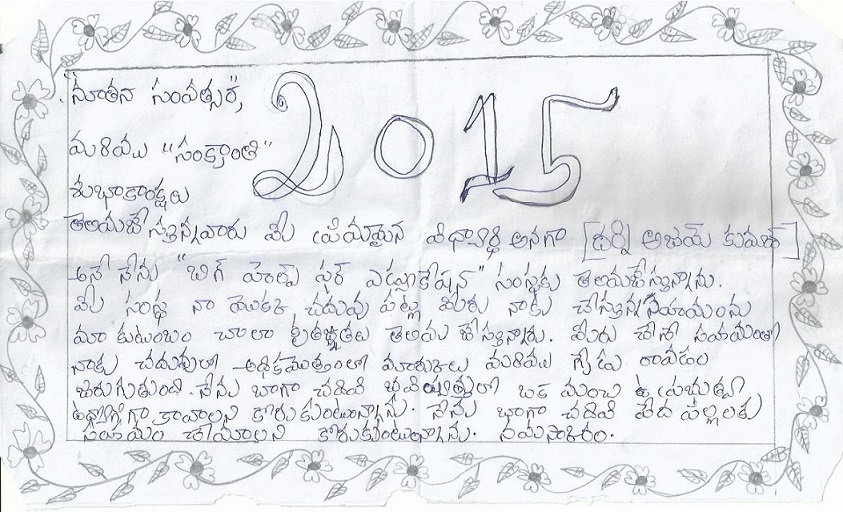 నూతన సంవత్సర,
2015
మరియు "సంక్రాంతి"
శుభాకాంక్షలు
తెలియజేస్తున్నవారు మీ ప్రియమైన విధ్యార్థి అనగా [దర్శి అజయ్ కుమార్]
అనే నేను "బిగ్ హెల్ప్ ఫర్ ఎడ్యుకేషన్" సంస్థకు తెలియజేస్తున్నాను.
మీ సంస్థ నా యొక్క చదువు పట్ల మీరు నాకు చేస్తున్న సహాయంను
మా కుటుంబం చాలా కృతజ్ఞతలు తెలియజేస్తున్నారు. మీరు చేసే సహయంతో
నాకు చదువులో అధికమొత్తంలో మారుకులు మరియు గ్రేడు రావడం
జరుగుతుంది. నేను బాగా చదివి భవిష్యత్తులో ఒక మంచి ప్రభుత్వ
కావాలని కోరుకుంటున్నాను. నేను బాగా చదివి పేద పిల్లలకు
సహాయం చేయాలని కోరుకుంటున్నాను. నమస్కారం.